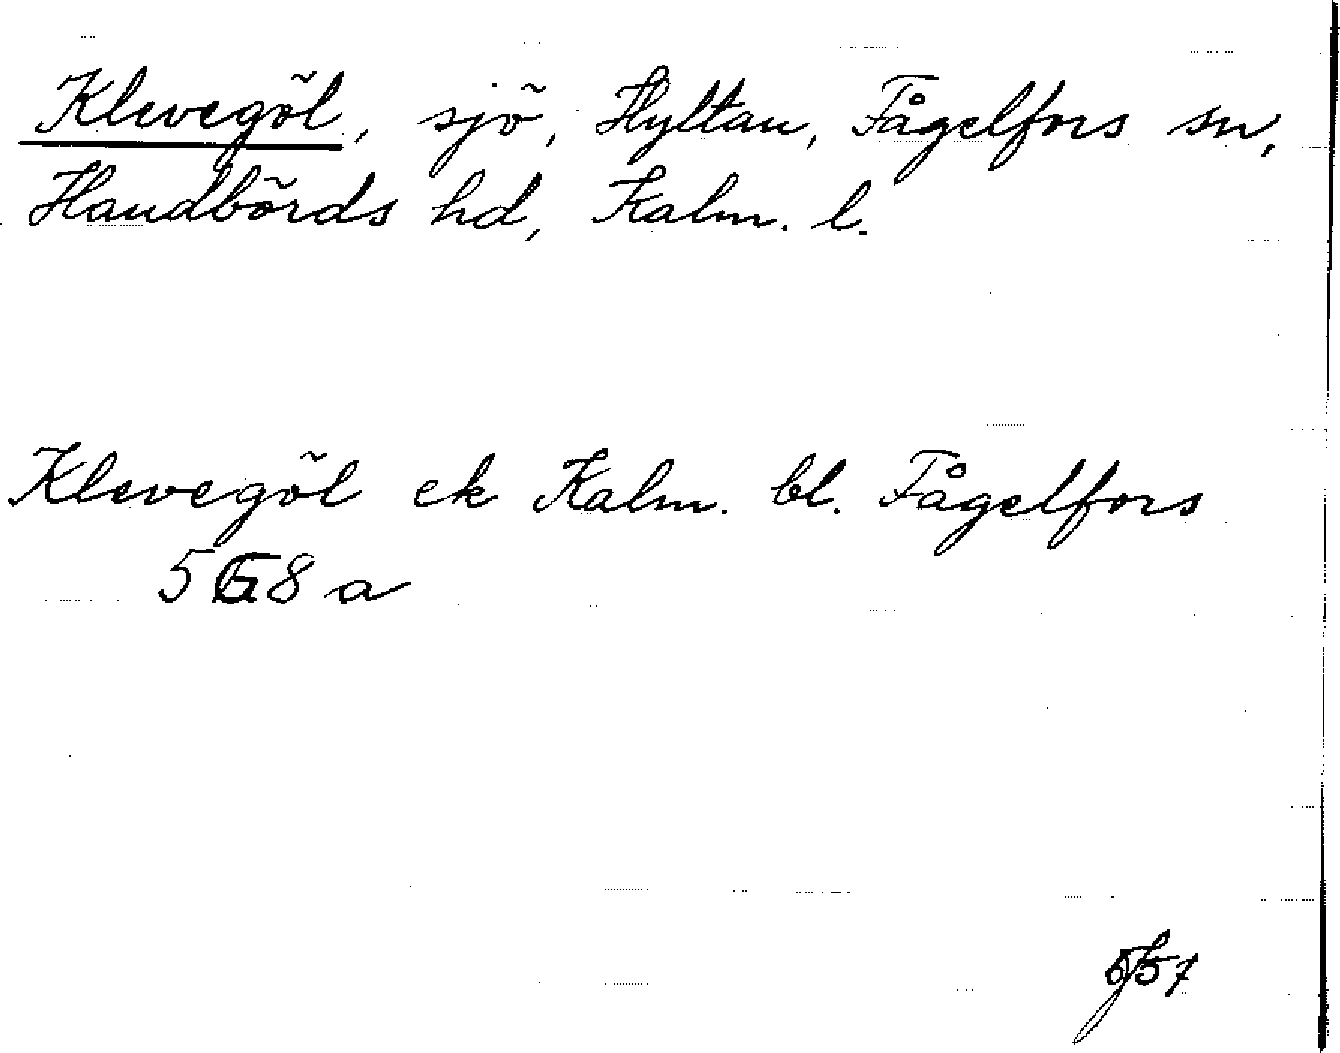 Klevegöl, sjö, Hyltan, Fågelfors sn,
Handbörds hd, Kalm. l.
Klevegöl ek Kalm. bl. Fågelfors
5G8a